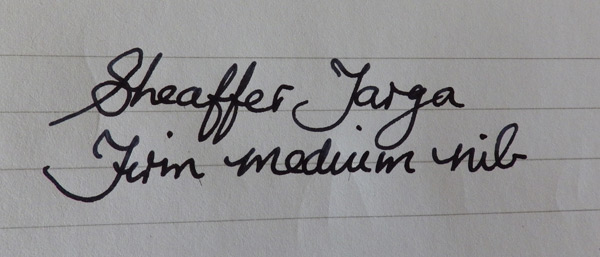 Sheaffer Targa
Firm medium nib